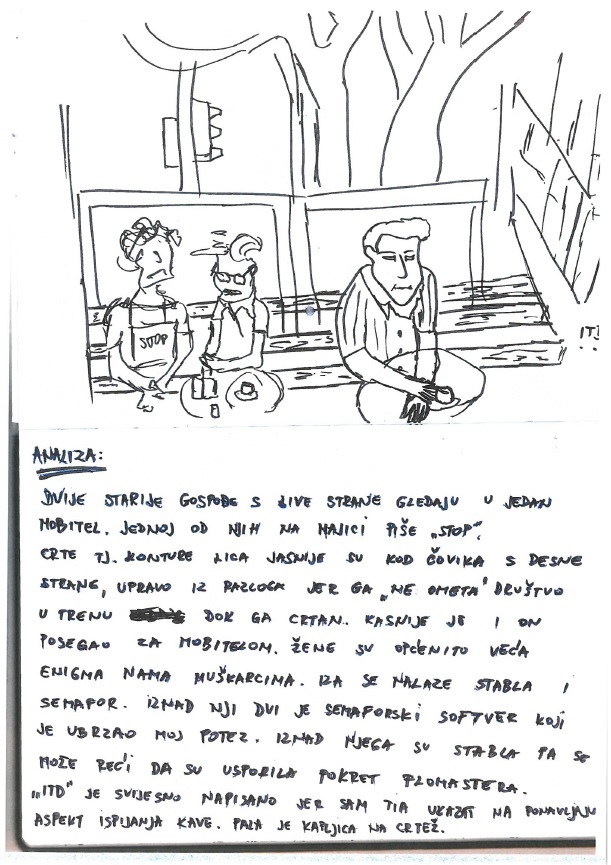 STOP
ITD
ANALIZA:
DVIJE STARIJE GOSPOĐE S LIVE STRANE GLEDAJU U JEDAN
MOBITEL. JEDNOJ OD NJIH NA MAJICI PIŠE „STOP“.
CRTE TJ. KONTURE LICA JASNIJE SU KOD ČOVIKA S DESNE
STRANE, UPRAVO IZ RAZLOGA JER GA „NE OMETA“ DRUŠTVO
U TRENU DOK GA CRTAM. KASNIJE JE I ON
POSEGAO ZA MOBITELOM. ŽENE SU OPĆENITO VEĆA
ENIGMA NAMA MUŠKARCIMA. IZA SE NALAZE STABLA I
SEMAFOR. IZNAD NJI DVI JE SEMAFORSKI SOFTVER KOJI
JE UBRZAO MOJ POTEZ. IZNAD NJEGA SU STABLA PA SE
MOŽE REĆI DA SU USPORILA POKRET FLOMASTERA.
„ITD“ JE SVIJESNO NAPISANO JER SAM TIA UKAZAT NA PONAVLJAJU
ASPEKT ISPIJANJA KAVE. PALA JE KAPLJICA NA CRTEŽ.